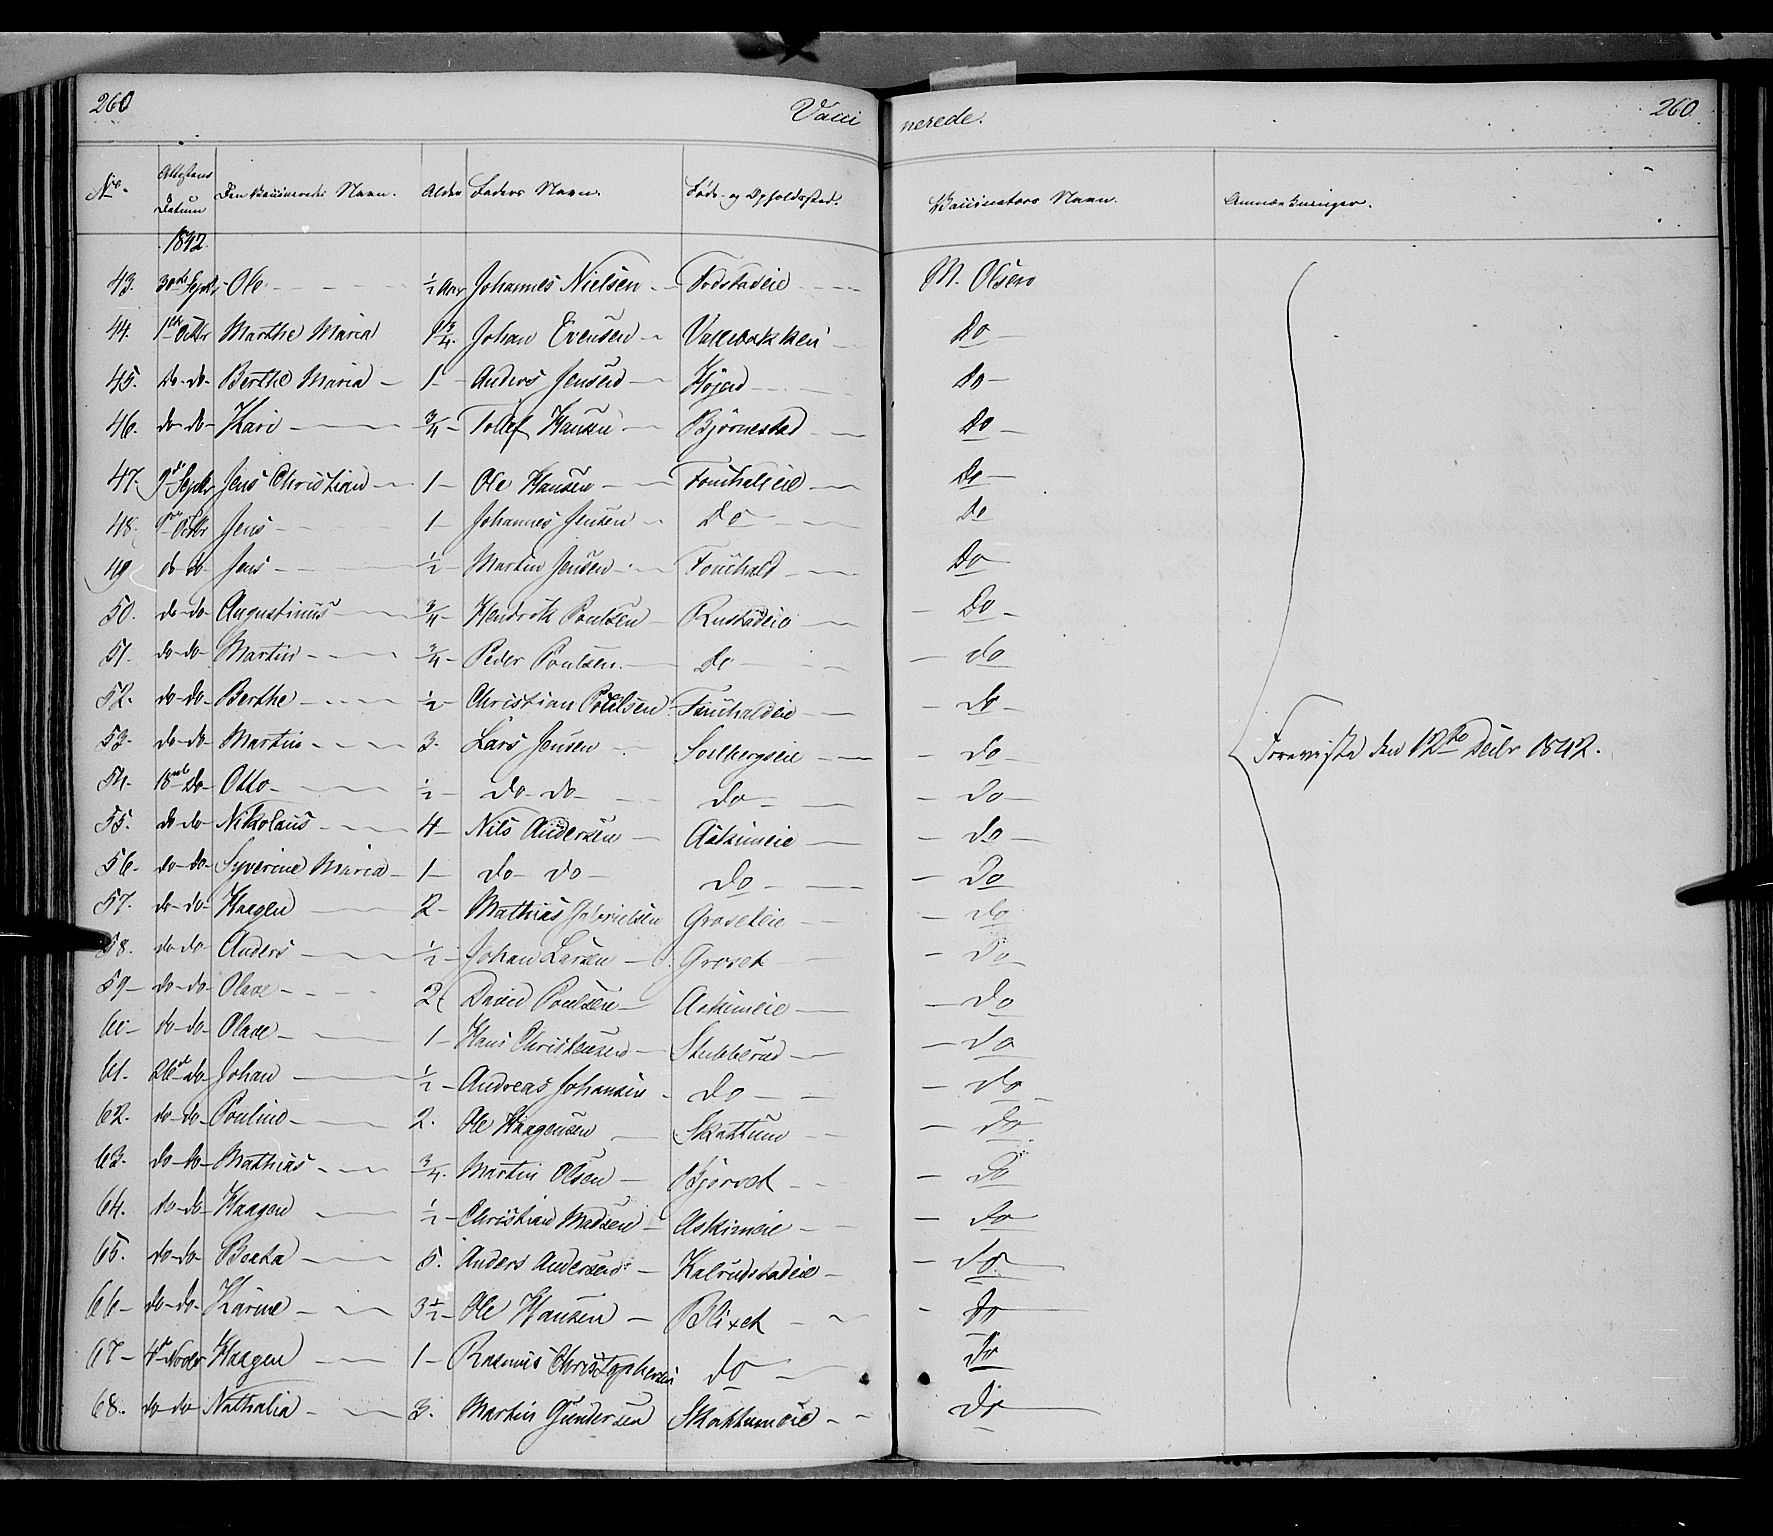 260 Vacci nerede. 260.
No. Attestens Datum Den Vaccineredes Navn. Alder Faders Navn. Føde- og Opholdssted. Vaccinators Navn. Anmærkninger.
1842.
43. 30te Septbr Ole ½ Aar Johannes Nielsen M. Olsen
44. 1ste Octbr Marthe Maria 1¾ Johan Evensen Do
45. Do- do- Berthe Maria 1 Anders Jensen Do
46. do- do- Kari ¾ Tollef Hansen Bjørnestad Do
47. Septbr Jens Christian 1 Ole Hansen Do
48. Octbr Jens 1 Johannes Jensen Do Do
49 do do Jens ½ Martin Jensen Do
50. do- do- Augustinus ¾ Hendrik Poulsen Rustadeie Do
51. do- do- Martin ¾ Peder Poulsen Do do
52. do- do- Berthe ½ Christian Poulsen do
53. do- do- Martin 3. Lars Jensen Solbergseie do Foreviste den 12te Decbr 1842.
54. 18de Do- Otto ½ do- do- do do
55. do do Nikolaus 4 Nils Andersen Askimeie do
56. do- do- Syverine Maria 1 do- do- do do
57. do- do- Haagen 2 Mathias Gabrielsen Groseteie do
58. do- do- Anders ½ Johan Larsen Groset do
59 do- do- Olave 2 David Poulsen Askimeie do
60 do- do- Olave 1 Hans Christensen Stubberud do
61. 26de do- Johan ½ Andreas Johansen do do
62. do- do- Pouline 2. Ole Haagensen Skattum do
63. do- do- Mathias ¾ Martin Olsen do
64. do- do- Haagen ½ Christian Madsen Askimeie do
65. do- do- Beata 5. Anders Andersen Kalrudstadeie do
66 do- do- Karine 3½ Ole Hansen Blixet do
67 4de Novbr Haagen 1 Rasmus Christophersen do do
68. do- do Nathalia 3. Martin Gundersen Skattumeie do